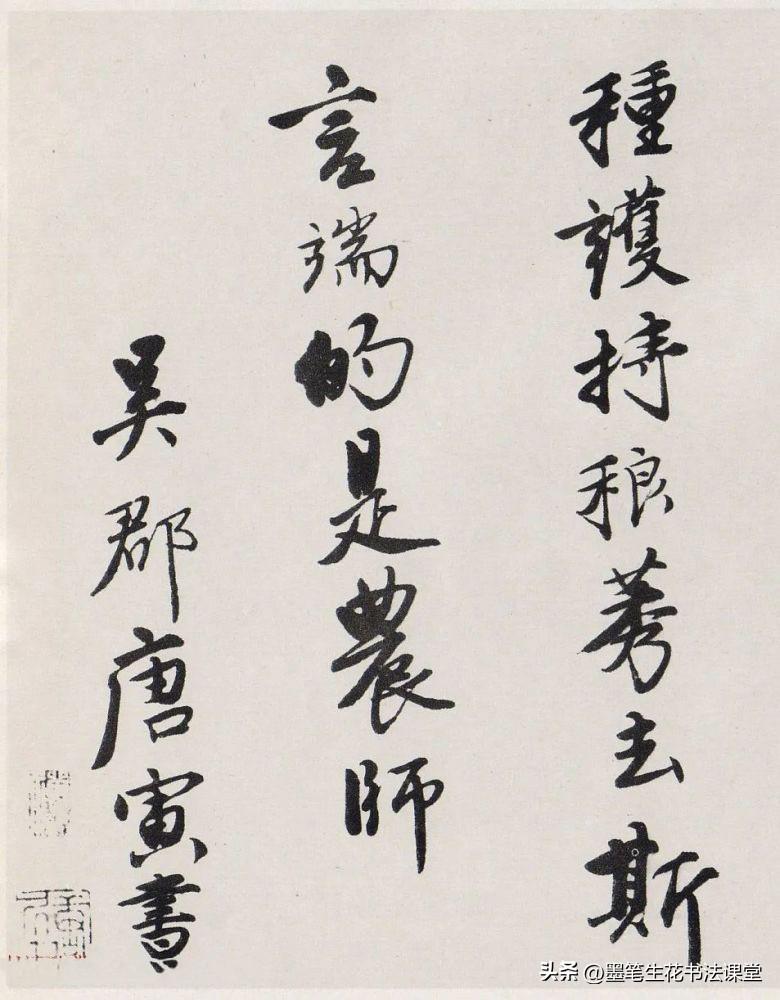 種護持稂莠去斯
言端的是農師
吳郡唐寅書
头条 @墨笔生花书法课堂